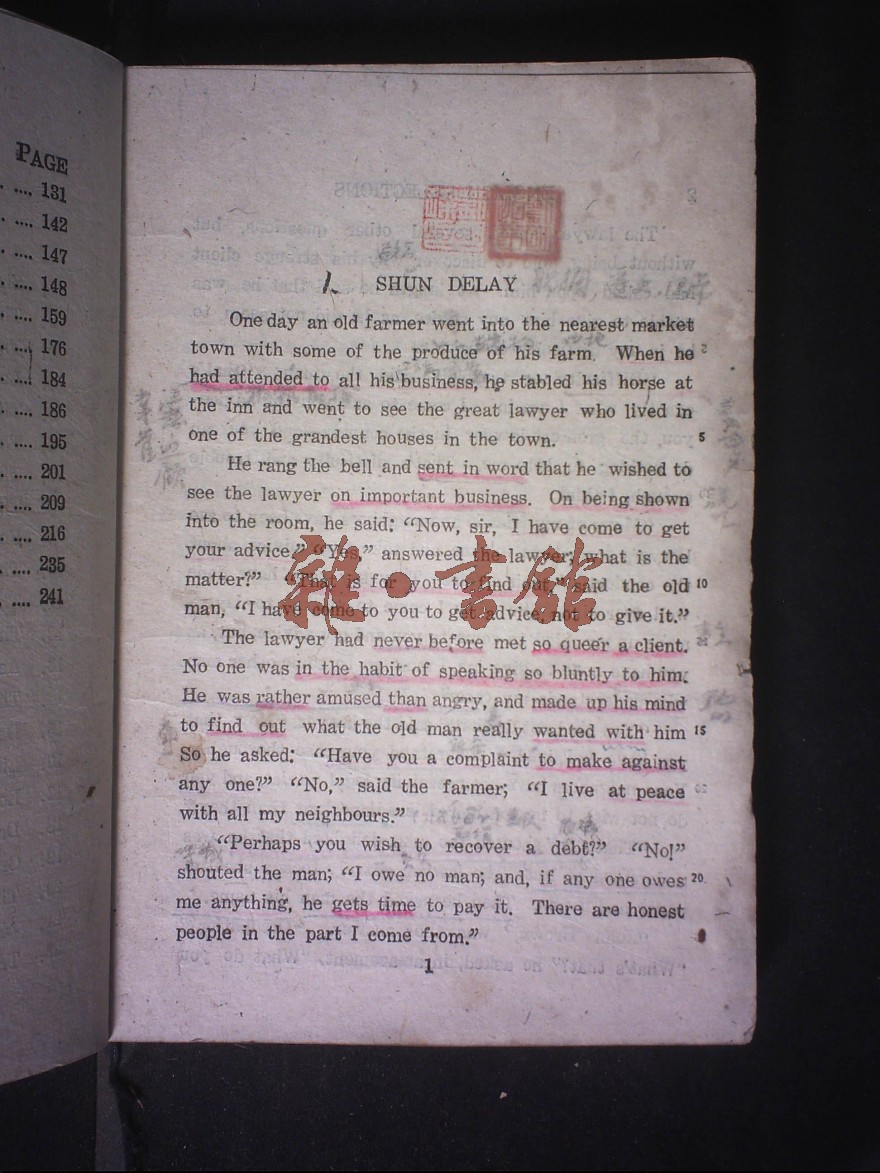 PAGE
.... 131
.... 142
.... 147
.... 148
.... 159
.... 176
.... 184
.... 186
.... 195
.... 201
.... 209
.... 216
.... 235
.... 241
1. SHUN DELAY
One day an old farmer went into the nearest market
town with some of the produce of his farm. When he
had attended to all his business, he stabled his horse at
the inn and went to see the great lawyer who lived in
one of the grandest houses in the town. 5
He rang the bell and sent in word that he wished to
see the lawyer on important business. On being shown
into the room, he said: “Now, sir, I have come to get
your advice.” “Yes,” answered the lawyer; what is the
matter?” “That is for you to find out,” said the old 10
man, “I have come to you to get advice, not to give it.”
The lawyer had never before met so queer a client.
No one was in the habit of speaking so bluntly to him.
He was rather amused than angry, and made up his mind
to find out what the old man really wanted with him 15
So he asked: “Have you a complaint to make against
any one?” “No,” said the farmer; “I live at peace
with all my neighbours.”
“Perhaps you wish to recover a debt?” “No!”
shouted the man; “I owe no man; and, if any one owes 20
me anything, he gets time to pay it. There are honest
people in the part I come from.”
1
雜·書館